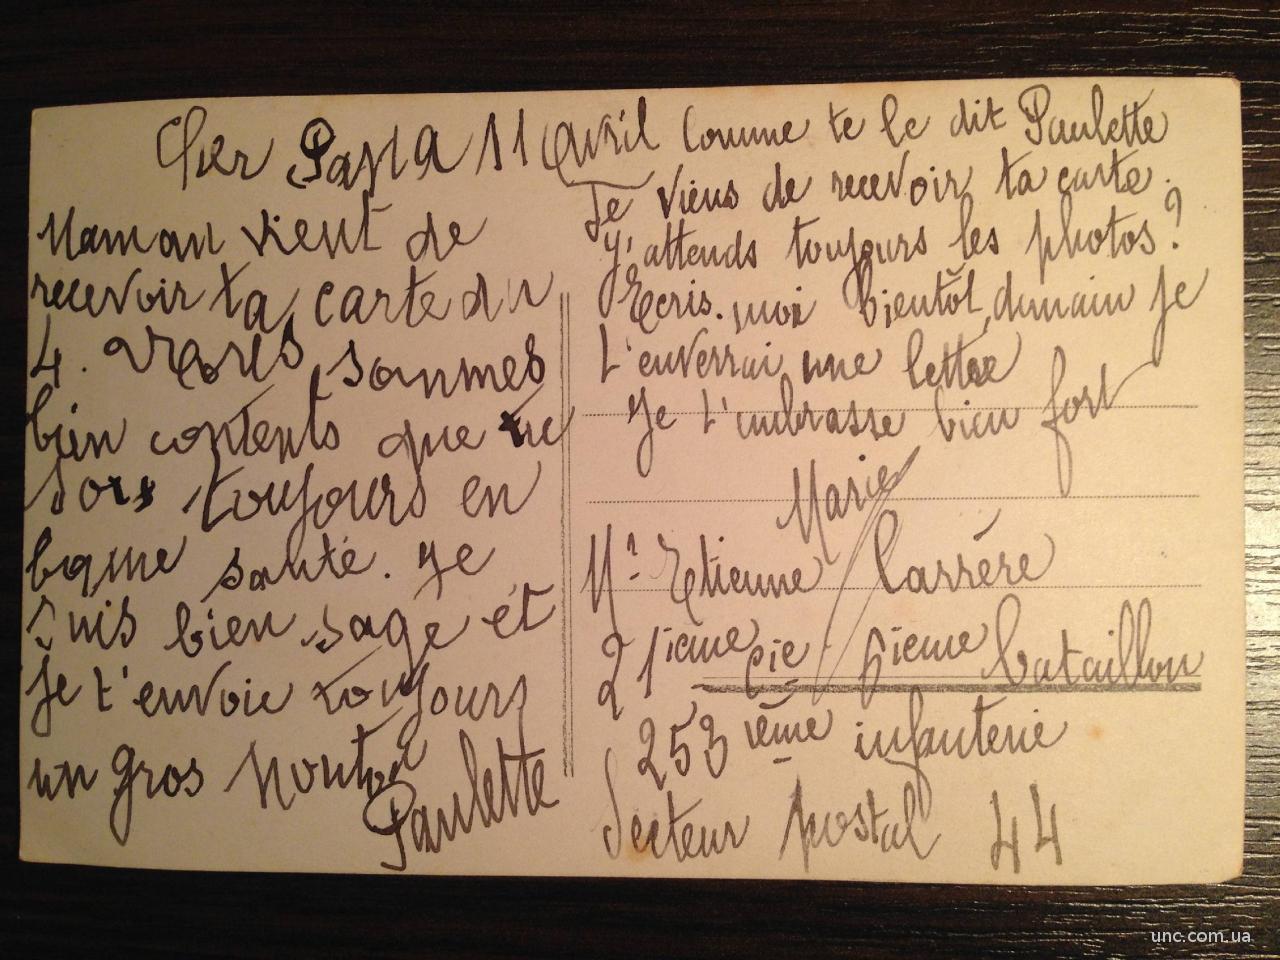 Cher Papa 11 Avril
Maman vient de
recevoir ta carte du
4. sommes
bien contents que tu
sois toujours en
bonne santé. Je
suis bien sage et
je t'envoie toujours
un gros
Paulette
Comme te le dit Paulette
Je viens de recevoir ta carte.
J'attends toujours les photos?
Ecris-moi bientôt, demain je
t'enverrai une lettre
Je t'embrasse bien fort
Marie
Mr Etienne Carrère
21ieme Cie 6ieme bataillon
253 ième infanterie
Secteur postal 44
unc.com.ua